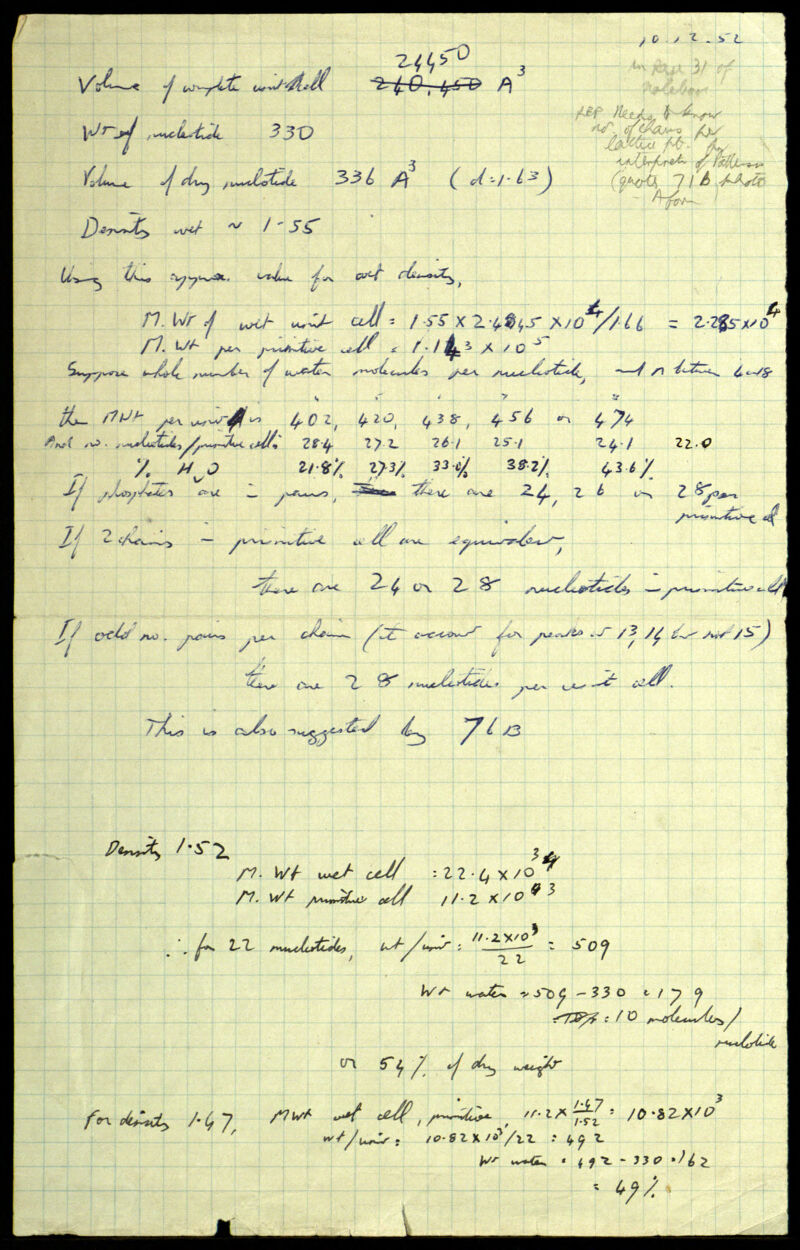 10.12.52
in Page 31 of
notebook
REF Needs to know
no. of chains per
lattice pt. for
interpretn of Patterson
(quotes 71B photo
- A form
24450
Volume of complete unit cell 240,450 A³
Wt of nucleotide 330
Volume of dry nucleotide 336 A³ (d=1.63)
Density wet ~ 1.55
Using this approx. value for wet density,
M. Wt of wet unit cell = 1.55 × 2.445 × 10⁴/1.66 = 2.285 × 10⁴
M. Wt per primitive cell = 1.143 × 10⁵
Suppose whole number of water molecules per nucleotide, and n between 4 and 8
then M Wt per unit is 402, 420, 438, 456 or 474
And no. nucleotides/primitive cell is 28.4 27.2 26.1 25.1 24.1 22.0
% H₂O 21.8% 27.3% 33.0% 38.2% 43.6%
If phosphates are in pairs, there are 24, 26 or 28 per
primitive cell
If 2 chains in primitive cell are equivalent,
there are 24 or 28 nucleotides in primitive cell
If odd no. pairs per chain (to account for peaks at 13, 14 but not 15)
there are 28 nucleotides per unit cell.
This is also suggested by 76B
Density 1.52
M. Wt wet cell = 22.4 × 10³
M. Wt primitive cell 11.2 × 10³
∴ for 22 nucleotides, wt/unit = 11.2 × 10³ / 22 = 509
Wt water = 509 - 330 = 179
= 10 molecules/
nucleotide
or 54% of dry weight
For density 1.47, M Wt wet cell, primitive, 11.2 × 1.47/1.52 = 10.82 × 10³
wt/unit = 10.82 × 10³/22 = 492
Wt water = 492 - 330 = 162
= 49%